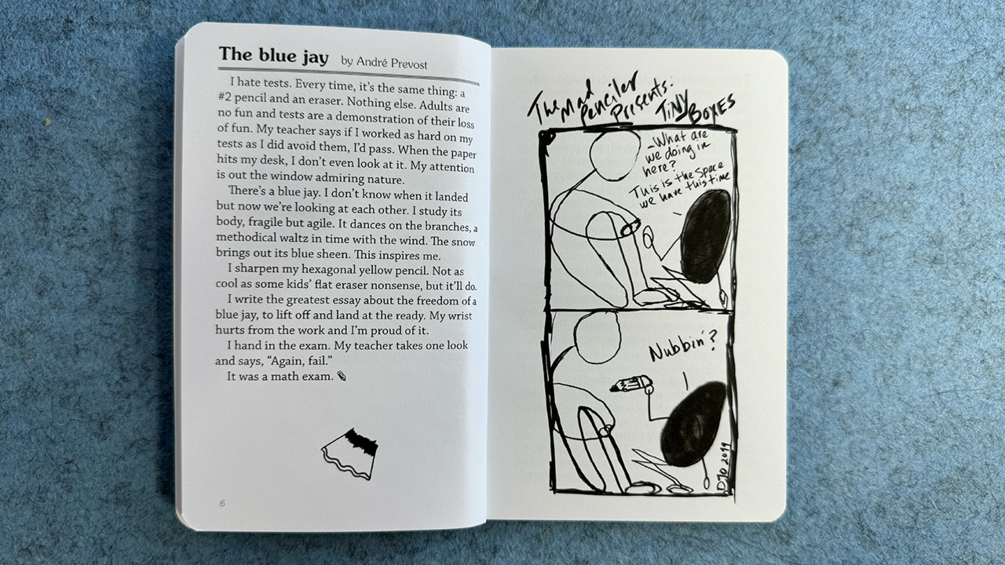 The blue jay by André Prevost
I hate tests. Every time, it's the same thing: a
#2 pencil and an eraser. Nothing else. Adults are
no fun and tests are a demonstration of their loss
of fun. My teacher says if I worked as hard on my
tests as I did avoid them, I'd pass. When the paper
hits my desk, I don't even look at it. My attention
is out the window admiring nature.
There's a blue jay. I don't know when it landed
but now we're looking at each other. I study its
body, fragile but agile. It dances on the branches, a
methodical waltz in time with the wind. The snow
brings out its blue sheen. This inspires me.
I sharpen my hexagonal yellow pencil. Not as
cool as some kids' flat eraser nonsense, but it'll do.
I write the greatest essay about the freedom of a
blue jay, to lift off and land at the ready. My wrist
hurts from the work and I'm proud of it.
I hand in the exam. My teacher takes one look
and says, “Again, fail.”
It was a math exam.
6
The Mad
Penciler
Presents:
Tiny
Boxes
-What are
we doing in
here?
This is the space
we have this time
Nubbin'?
DJO 2019